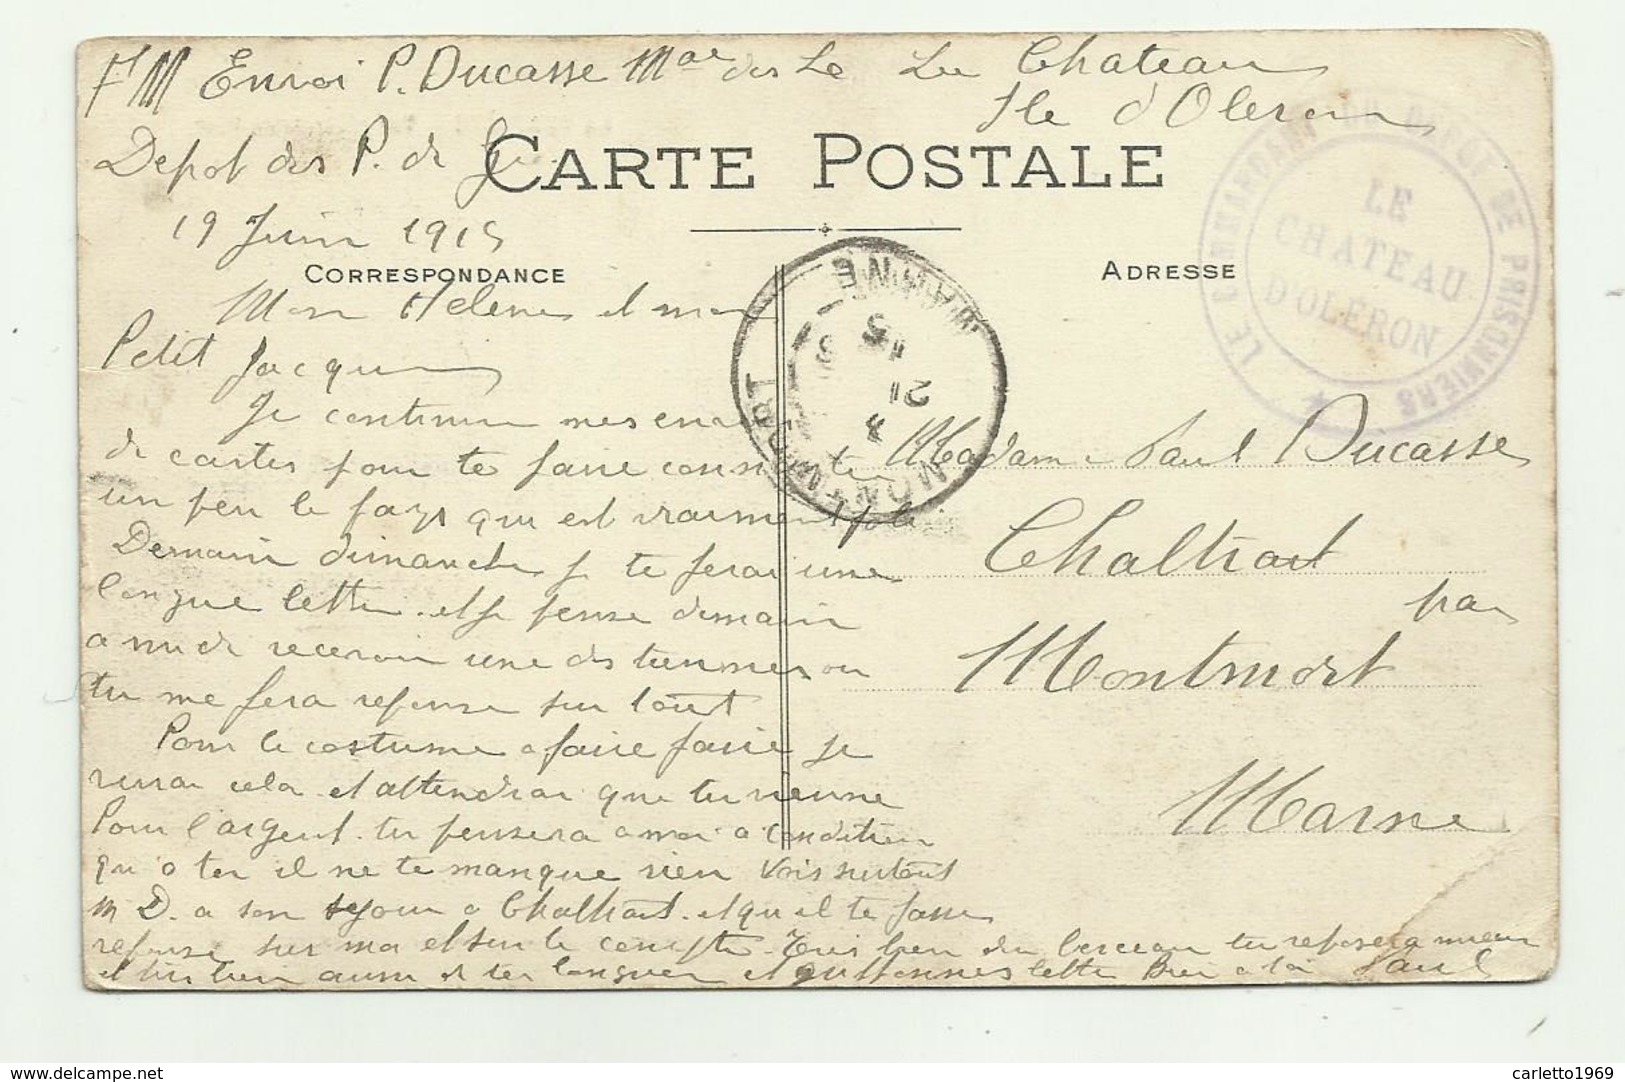 FM Envoi P. Ducasse Mar des Le Le Chateau
Ile d'Oleron
Depot des P. de Gu
CARTE POSTALE
19 Juin 1915
CORRESPONDANCE
ADRESSE
LE COMMANDANT DU DEPOT DE PRISONNIERS
LE
CHATEAU
D'OLERON
MONTMORT
MARNE
21
15
Mon Helene et mon
Petit Jacques
Je continue mes envois
de cartes pour te faire connaitre
un peu le pays qui est vraiment joli
Demain dimanche je te ferai une
longue lettre et je pense demain
a midi recevoir une des tiennes ou
tu me fera reponse sur tout
Pour le costume a faire faire je
verrai cela et attendrai que tu vienne
Pour l'argent tu pensera a moi a condition
qu'a toi il ne te manque rien Vois surtout
M D. a son sejour a Chaltrait et qu il te fasse
reponse sur moi et sur le compte Tres bien du berceau tu reposera mieux
et tres bien aussi
lettre Bien a toi Paul
Madame Paul Ducasse
Chaltrait
par
Montmort
Marne
delcampe.net
carletto1969